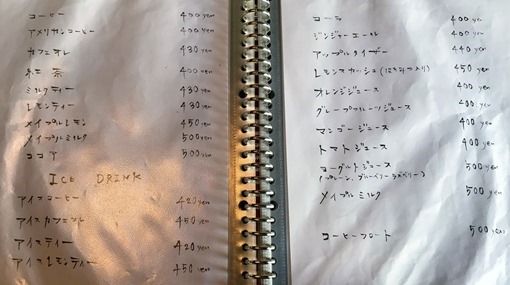 コーヒー 400 yen
アメリカンコーヒー 400 yen
カフェオレ 430 yen
紅茶 400 yen
ミルクティー 430 yen
レモンティー 430 yen
メイプルレモン 450 yen
メイプルミルク 500 yen
ココア 500 yen
ICE DRINK
アイスコーヒー 420 yen
アイスカフェオレ 450 yen
アイスティー 420 yen
アイスレモンティー 450 yen
コーラ 400 yen
ジンジャーエール 400 yen
アップルタイザー 440 yen
レモンスカッシュ(はちみつ入り) 450 yen
オレンジジュース 400 yen
グレープフルーツジュース 400 yen
マンゴージュース 400 yen
トマトジュース 400 yen
ヨーグルトジュース 500 yen
(プレーン、ブルーベリー
メイプルミルク 500 yen
コーヒーフロート 500 yen